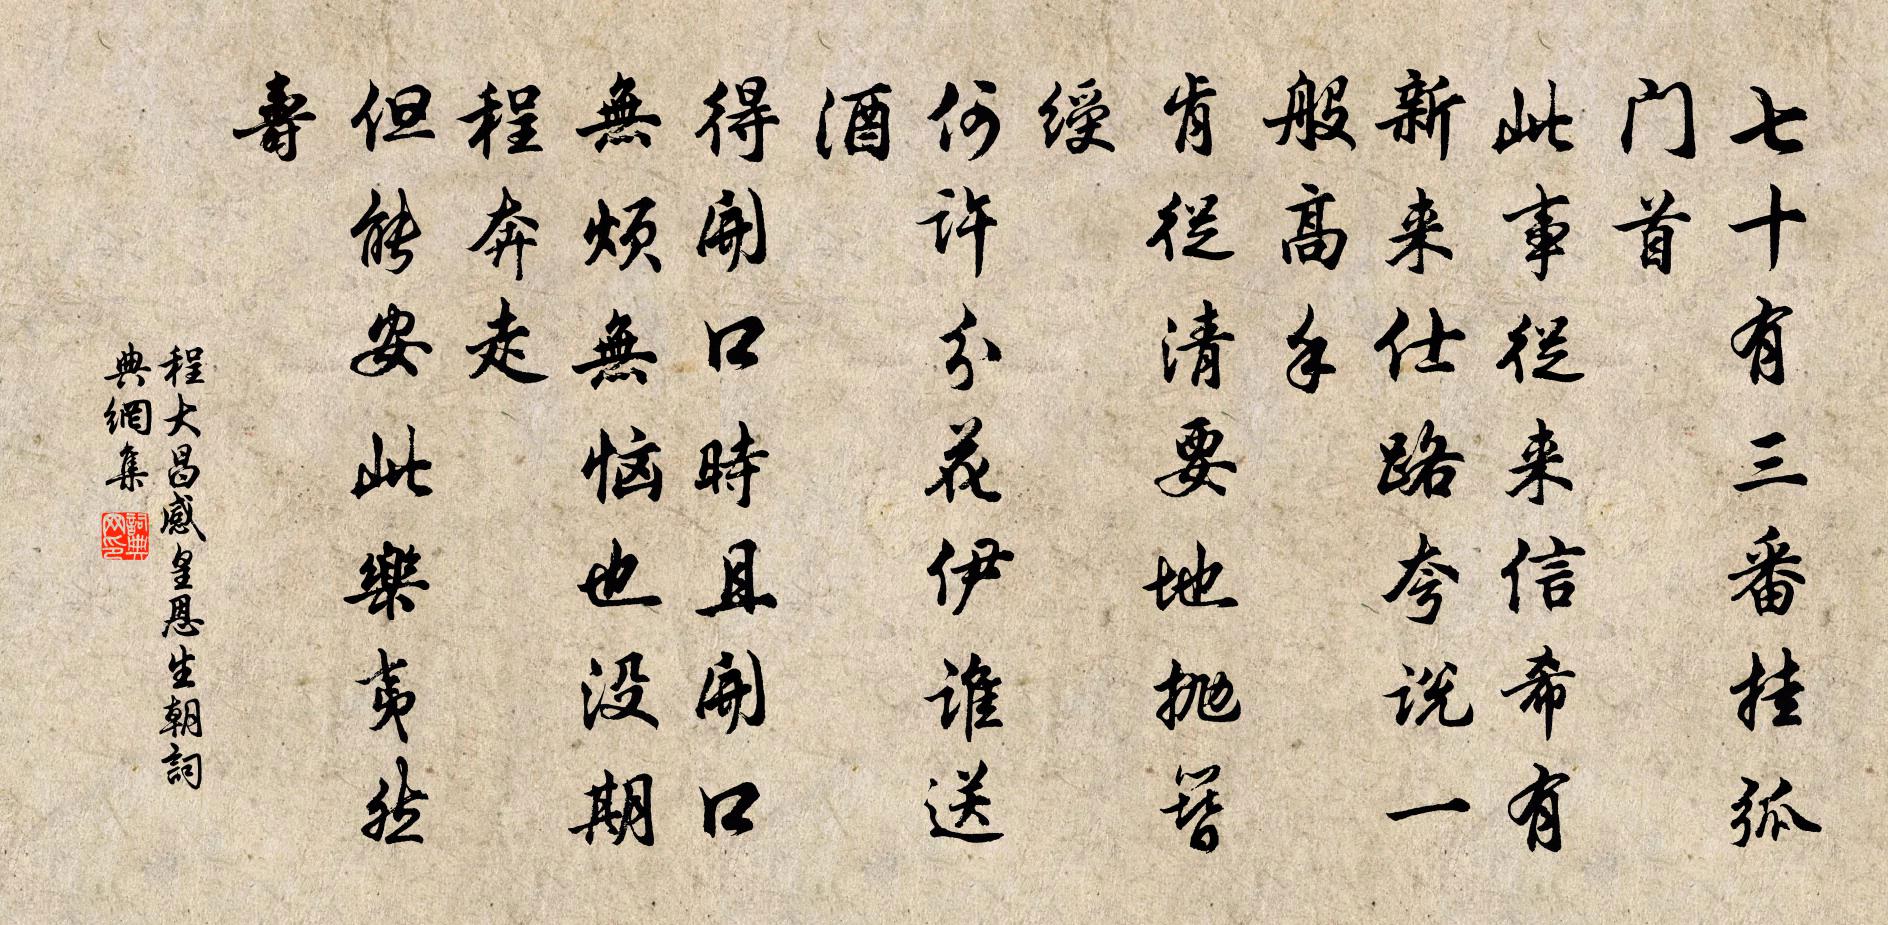 七十有三番挂弧
门首
此事從来信希有
新来仕路夸说一
般高手
肯從清要地抛簪
綬
何许分花伊谁送
酒
得開口時且開口
無烦無恼也没期
程奔走
但能安此樂夷然
壽
程大昌感皇恩生朝詞
典網集
詞典网印